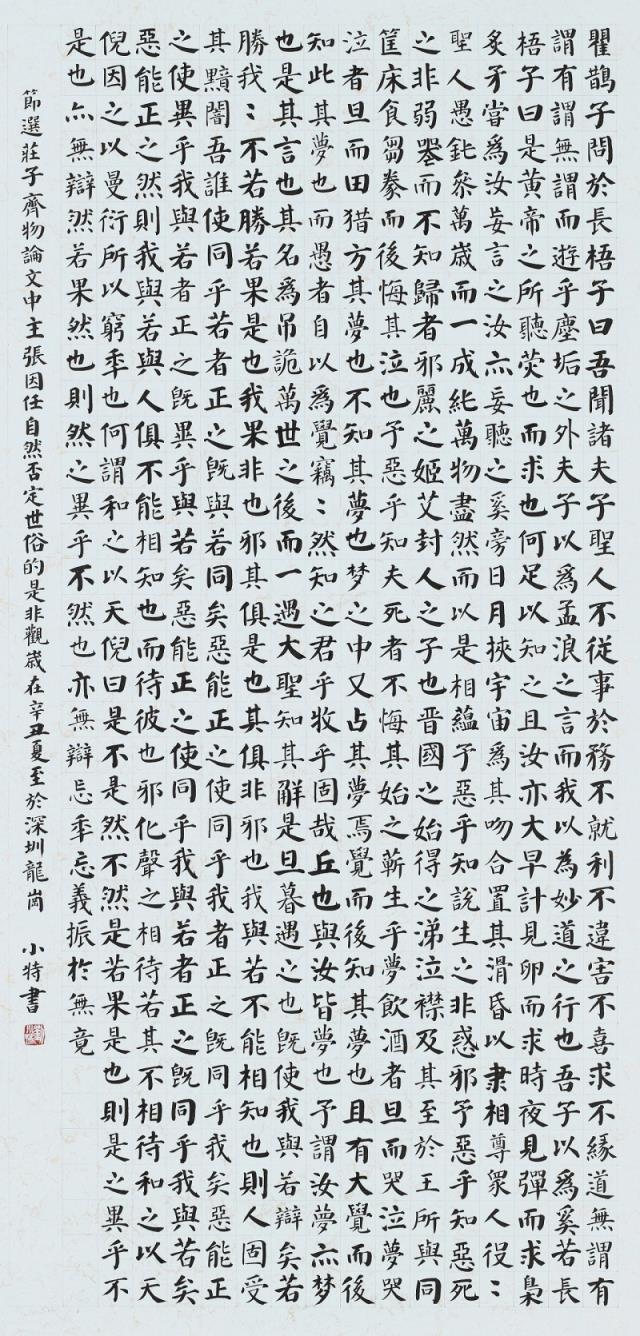 瞿鵲子問於長梧子曰吾聞諸夫子聖人不從事於務不就利不違害不喜求不緣道無謂有
謂有謂無謂而遊乎塵垢之外夫子以為孟浪之言而我以為妙道之行也吾子以為奚若長
梧子曰是黃帝之所聽熒也而求也何足以知之且汝亦大早計見卵而求時夜見彈而求梟
炙予嘗為汝妄言之汝亦妄聽之奚旁日月挾宇宙為其吻合置其滑昏以隸相尊衆人役〻
聖人愚芚參萬歲而一成純萬物盡然而以是相蘊予惡乎知說生之非惑邪予惡乎知惡死
之非弱喪而不知歸者邪麗之姬艾封人之子也晉國之始得之涕泣襟及其至於王所與同
筐床食芻豢而後悔其泣也予惡乎知夫死者不悔其始之蘄生乎夢飲酒者旦而哭泣夢哭
泣者旦而田猎方其夢也不知其夢也梦之中又占其夢焉覺而後知其夢也且有大覺而後
知此其夢也而愚者自以為覺竊〻然知之君乎牧乎固哉丘也與汝皆夢也予謂汝夢亦梦
也是其言也其名為吊詭萬世之後而一遇大聖知其解是旦暮遇之也既使我與若辯矣若
勝我〻不若勝若果是也我果非也邪其俱是也其俱非邪也我與若不能相知也則人固受
其黮闇吾誰使同乎若者正之既與若同矣惡能正之使同乎我者正之既同乎我矣惡能正
之使異乎我與若者正之既異乎與若矣惡能正之使同乎我與若者正之既同乎我與若矣
惡能正之然則我與若與人俱不能相知也而待彼也邪化聲之相待若其不相待和之以天
倪因之以曼衍所以窮年也何謂和之以天倪曰是不是然不然是若果是也則是之異乎不
是也亦無辯然若果然也則然之異乎不然也亦無辯忘年忘義振於無竟
節選莊子齊物論文中主張因任自然否定世俗的是非觀歲在辛丑夏至於深圳龍崗 小特書